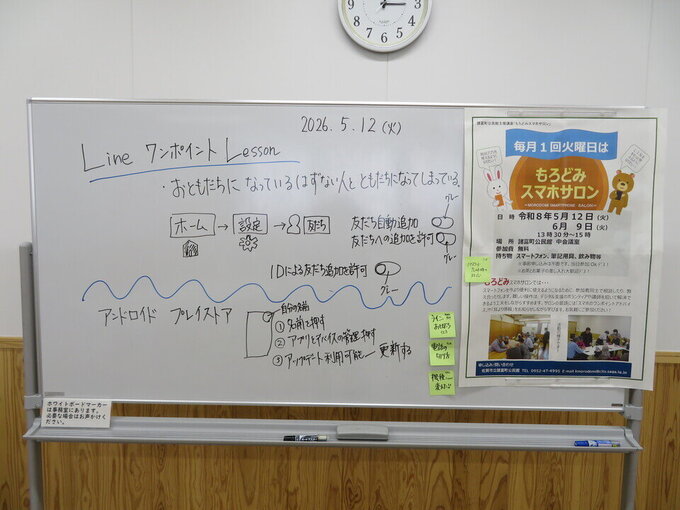 2026.5.12(火)
Line ワンポイント Lesson
・おともだちに なっているはずない人と ともだちになってしまっている。
ホーム → 設定 → 友だち
友だち自動追加
グレー
友だちへの追加を許可
IDによる友だち追加を許可
グレー
アンドロイド プレイストア
自分の名前
① 名前を押す
② アプリとデバイスの管理を押す
③ アップデート利用可能 ー 更新する
ホワイトボードマーカー
は事務室にあります。
必要な場合はお声かけく
ださい。
毎月1回火曜日は
もろどみ
スマホサロン
~MORODOMI SMARTPHONE SALON~
日時 令和8年5月12日(火)
6月 9日(火)
13時30分~15時
場所 諸富町公民館 中会議室
参加費 無料
持ち物 スマートフォン、筆記用具、飲み物等
もろどみスマホサロンでは・・・
申し込み/問い合わせ
佐賀市立諸富町公民館